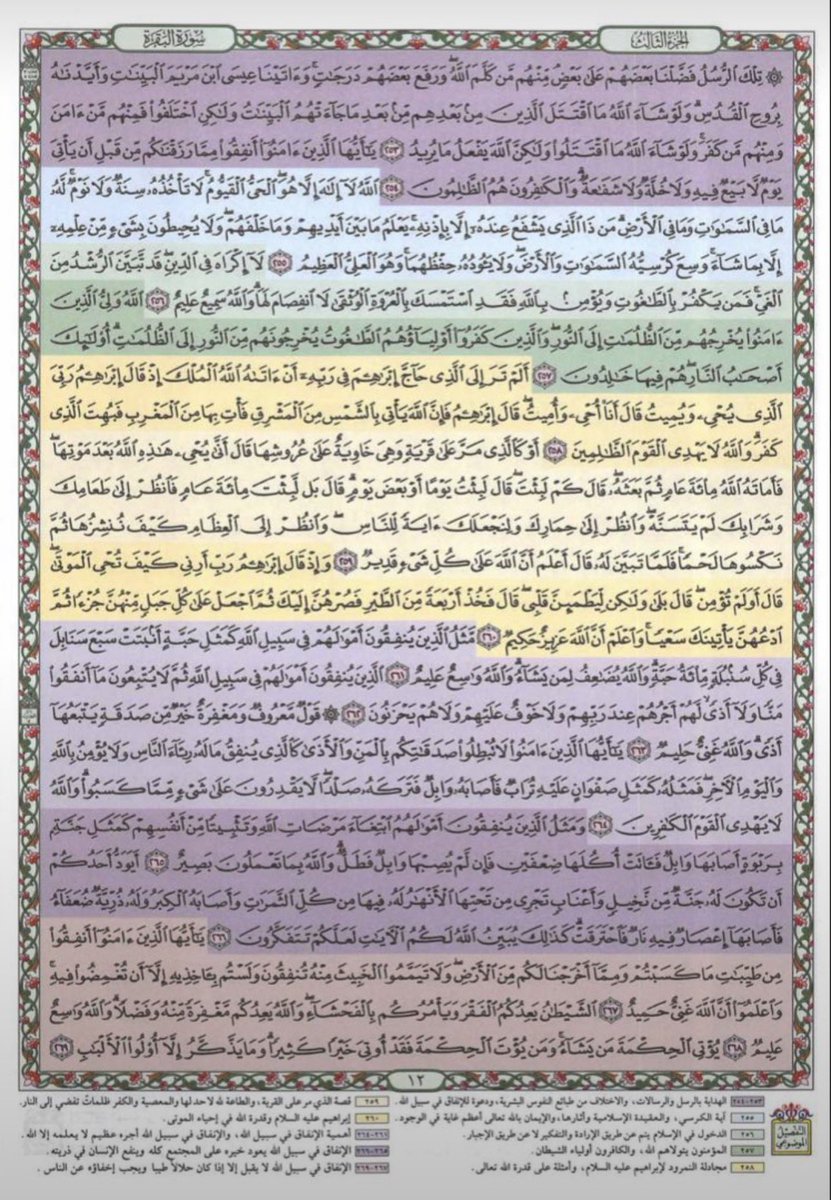 الجزء الثالث
سورة البقرة
۞ تِلْكَ ٱلرُّسُلُ فَضَّلْنَا بَعْضَهُمْ عَلَىٰ بَعْضٍ مِّنْهُم مَّن كَلَّمَ ٱللَّهُ وَرَفَعَ بَعْضَهُمْ دَرَجَٰتٍ وَءَاتَيْنَا عِيسَى ٱبْنَ مَرْيَمَ ٱلْبَيِّنَٰتِ وَأَيَّدْنَٰهُ
بِرُوحِ ٱلْقُدُسِ وَلَوْ شَآءَ ٱللَّهُ مَا ٱقْتَتَلَ ٱلَّذِينَ مِنۢ بَعْدِهِم مِّنۢ بَعْدِ مَا جَآءَتْهُمُ ٱلْبَيِّنَٰتُ وَلَٰكِنِ ٱخْتَلَفُوا۟ فَمِنْهُم مَّنْ ءَامَنَ
وَمِنْهُم مَّن كَفَرَ وَلَوْ شَآءَ ٱللَّهُ مَا ٱقْتَتَلُوا۟ وَلَٰكِنَّ ٱللَّهَ يَفْعَلُ مَا يُرِيدُ ٢٥٣ يَٰٓأَيُّهَا ٱلَّذِينَ ءَامَنُوٓا۟ أَنفِقُوا۟ مِمَّا رَزَقْنَٰكُم مِّن قَبْلِ أَن يَأْتِىَ
يَوْمٌ لَّا بَيْعٌ فِيهِ وَلَا خُلَّةٌ وَلَا شَفَٰعَةٌ وَٱلْكَٰفِرُونَ هُمُ ٱلظَّٰلِمُونَ ٢٥٤ ٱللَّهُ لَآ إِلَٰهَ إِلَّا هُوَ ٱلْحَىُّ ٱلْقَيُّومُ لَا تَأْخُذُهُۥ سِنَةٌ وَلَا نَوْمٌ لَّهُۥ
مَا فِى ٱلسَّمَٰوَٰتِ وَمَا فِى ٱلْأَرْضِ مَن ذَا ٱلَّذِى يَشْفَعُ عِندَهُۥٓ إِلَّا بِإِذْنِهِۦ يَعْلَمُ مَا بَيْنَ أَيْدِيهِمْ وَمَا خَلْفَهُمْ وَلَا يُحِيطُونَ بِشَىْءٍ مِّنْ عِلْمِهِۦٓ
إِلَّا بِمَا شَآءَ وَسِعَ كُرْسِيُّهُ ٱلسَّمَٰوَٰتِ وَٱلْأَرْضَ وَلَا يَـُٔودُهُۥ حِفْظُهُمَا وَهُوَ ٱلْعَلِىُّ ٱلْعَظِيمُ ٢٥٥ لَآ إِكْرَاهَ فِى ٱلدِّينِ قَد تَّبَيَّنَ ٱلرُّشْدُ مِنَ
ٱلْغَىِّ فَمَن يَكْفُرْ بِٱلطَّٰغُوتِ وَيُؤْمِنۢ بِٱللَّهِ فَقَدِ ٱسْتَمْسَكَ بِٱلْعُرْوَةِ ٱلْوُثْقَىٰ لَا ٱنفِصَامَ لَهَا وَٱللَّهُ سَمِيعٌ عَلِيمٌ ٢٥٦ ٱللَّهُ وَلِىُّ ٱلَّذِينَ
ءَامَنُوا۟ يُخْرِجُهُم مِّنَ ٱلظُّلُمَٰتِ إِلَى ٱلنُّورِ وَٱلَّذِينَ كَفَرُوٓا۟ أَوْلِيَآؤُهُمُ ٱلطَّٰغُوتُ يُخْرِجُونَهُم مِّنَ ٱلنُّورِ إِلَى ٱلظُّلُمَٰتِ أُو۟لَٰٓئِكَ
أَصْحَٰبُ ٱلنَّارِ هُمْ فِيهَا خَٰلِدُونَ ٢٥٧ أَلَمْ تَرَ إِلَى ٱلَّذِى حَآجَّ إِبْرَٰهِـۧمَ فِى رَبِّهِۦٓ أَنْ ءَاتَىٰهُ ٱللَّهُ ٱلْمُلْكَ إِذْ قَالَ إِبْرَٰهِـۧمُ رَبِّىَ
ٱلَّذِى يُحْىِۦ وَيُمِيتُ قَالَ أَنَا۠ أُحْىِۦ وَأُمِيتُ قَالَ إِبْرَٰهِـۧمُ فَإِنَّ ٱللَّهَ يَأْتِى بِٱلشَّمْسِ مِنَ ٱلْمَشْرِقِ فَأْتِ بِهَا مِنَ ٱلْمَغْرِبِ فَبُهِتَ ٱلَّذِى
كَفَرَ وَٱللَّهُ لَا يَهْدِى ٱلْقَوْمَ ٱلظَّٰلِمِينَ ٢٥٨ أَوْ كَٱلَّذِى مَرَّ عَلَىٰ قَرْيَةٍ وَهِىَ خَاوِيَةٌ عَلَىٰ عُرُوشِهَا قَالَ أَنَّىٰ يُحْىِۦ هَٰذِهِ ٱللَّهُ بَعْدَ مَوْتِهَا
فَأَمَاتَهُ ٱللَّهُ مِا۟ئَةَ عَامٍ ثُمَّ بَعَثَهُۥ قَالَ كَمْ لَبِثْتَ قَالَ لَبِثْتُ يَوْمًا أَوْ بَعْضَ يَوْمٍ قَالَ بَل لَّبِثْتَ مِا۟ئَةَ عَامٍ فَٱنظُرْ إِلَىٰ طَعَامِكَ
وَشَرَابِكَ لَمْ يَتَسَنَّهْ وَٱنظُرْ إِلَىٰ حِمَارِكَ وَلِنَجْعَلَكَ ءَايَةً لِّلنَّاسِ وَٱنظُرْ إِلَى ٱلْعِظَامِ كَيْفَ نُنشِزُهَا ثُمَّ
نَكْسُوهَا لَحْمًا فَلَمَّا تَبَيَّنَ لَهُۥ قَالَ أَعْلَمُ أَنَّ ٱللَّهَ عَلَىٰ كُلِّ شَىْءٍ قَدِيرٌ ٢٥٩ وَإِذْ قَالَ إِبْرَٰهِـۧمُ رَبِّ أَرِنِى كَيْفَ تُحْىِ ٱلْمَوْتَىٰ
قَالَ أَوَلَمْ تُؤْمِن قَالَ بَلَىٰ وَلَٰكِن لِّيَطْمَئِنَّ قَلْبِى قَالَ فَخُذْ أَرْبَعَةً مِّنَ ٱلطَّيْرِ فَصُرْهُنَّ إِلَيْكَ ثُمَّ ٱجْعَلْ عَلَىٰ كُلِّ جَبَلٍ مِّنْهُنَّ جُزْءًا ثُمَّ
ٱدْعُهُنَّ يَأْتِينَكَ سَعْيًا وَٱعْلَمْ أَنَّ ٱللَّهَ عَزِيزٌ حَكِيمٌ ٢٦٠ مَّثَلُ ٱلَّذِينَ يُنفِقُونَ أَمْوَٰلَهُمْ فِى سَبِيلِ ٱللَّهِ كَمَثَلِ حَبَّةٍ أَنۢبَتَتْ سَبْعَ سَنَابِلَ
فِى كُلِّ سُنۢبُلَةٍ مِّا۟ئَةُ حَبَّةٍ وَٱللَّهُ يُضَٰعِفُ لِمَن يَشَآءُ وَٱللَّهُ وَٰسِعٌ عَلِيمٌ ٢٦١ ٱلَّذِينَ يُنفِقُونَ أَمْوَٰلَهُمْ فِى سَبِيلِ ٱللَّهِ ثُمَّ لَا يُتْبِعُونَ مَآ أَنفَقُوا۟
مَنًّا وَلَآ أَذًى لَّهُمْ أَجْرُهُمْ عِندَ رَبِّهِمْ وَلَا خَوْفٌ عَلَيْهِمْ وَلَا هُمْ يَحْزَنُونَ ٢٦٢ ۞ قَوْلٌ مَّعْرُوفٌ وَمَغْفِرَةٌ خَيْرٌ مِّن صَدَقَةٍ يَتْبَعُهَآ
أَذًى وَٱللَّهُ غَنِىٌّ حَلِيمٌ ٢٦٣ يَٰٓأَيُّهَا ٱلَّذِينَ ءَامَنُوا۟ لَا تُبْطِلُوا۟ صَدَقَٰتِكُم بِٱلْمَنِّ وَٱلْأَذَىٰ كَٱلَّذِى يُنفِقُ مَالَهُۥ رِئَآءَ ٱلنَّاسِ وَلَا يُؤْمِنُ بِٱللَّهِ
وَٱلْيَوْمِ ٱلْءَاخِرِ فَمَثَلُهُۥ كَمَثَلِ صَفْوَانٍ عَلَيْهِ تُرَابٌ فَأَصَابَهُۥ وَابِلٌ فَتَرَكَهُۥ صَلْدًا لَّا يَقْدِرُونَ عَلَىٰ شَىْءٍ مِّمَّا كَسَبُوا۟ وَٱللَّهُ
لَا يَهْدِى ٱلْقَوْمَ ٱلْكَٰفِرِينَ ٢٦٤ وَمَثَلُ ٱلَّذِينَ يُنفِقُونَ أَمْوَٰلَهُمُ ٱبْتِغَآءَ مَرْضَاتِ ٱللَّهِ وَتَثْبِيتًا مِّنْ أَنفُسِهِمْ كَمَثَلِ جَنَّةٍۭ
بِرَبْوَةٍ أَصَابَهَا وَابِلٌ فَـَٔاتَتْ أُكُلَهَا ضِعْفَيْنِ فَإِن لَّمْ يُصِبْهَا وَابِلٌ فَطَلٌّ وَٱللَّهُ بِمَا تَعْمَلُونَ بَصِيرٌ ٢٦٥ أَيَوَدُّ أَحَدُكُمْ
أَن تَكُونَ لَهُۥ جَنَّةٌ مِّن نَّخِيلٍ وَأَعْنَابٍ تَجْرِى مِن تَحْتِهَا ٱلْأَنْهَٰرُ لَهُۥ فِيهَا مِن كُلِّ ٱلثَّمَرَٰتِ وَأَصَابَهُ ٱلْكِبَرُ وَلَهُۥ ذُرِّيَّةٌ ضُعَفَآءُ
فَأَصَابَهَآ إِعْصَارٌ فِيهِ نَارٌ فَٱحْتَرَقَتْ كَذَٰلِكَ يُبَيِّنُ ٱللَّهُ لَكُمُ ٱلْءَايَٰتِ لَعَلَّكُمْ تَتَفَكَّرُونَ ٢٦٦ يَٰٓأَيُّهَا ٱلَّذِينَ ءَامَنُوٓا۟ أَنفِقُوا۟
مِن طَيِّبَٰتِ مَا كَسَبْتُمْ وَمِمَّآ أَخْرَجْنَا لَكُم مِّنَ ٱلْأَرْضِ وَلَا تَيَمَّمُوا۟ ٱلْخَبِيثَ مِنْهُ تُنفِقُونَ وَلَسْتُم بِـَٔاخِذِيهِ إِلَّآ أَن تُغْمِضُوا۟ فِيهِ
وَٱعْلَمُوٓا۟ أَنَّ ٱللَّهَ غَنِىٌّ حَمِيدٌ ٢٦٧ ٱلشَّيْطَٰنُ يَعِدُكُمُ ٱلْفَقْرَ وَيَأْمُرُكُم بِٱلْفَحْشَآءِ وَٱللَّهُ يَعِدُكُم مَّغْفِرَةً مِّنْهُ وَفَضْلًا وَٱللَّهُ وَٰسِعٌ
عَلِيمٌ ٢٦٨ يُؤْتِى ٱلْحِكْمَةَ مَن يَشَآءُ وَمَن يُؤْتَ ٱلْحِكْمَةَ فَقَدْ أُوتِىَ خَيْرًا كَثِيرًا وَمَا يَذَّكَّرُ إِلَّآ أُو۟لُوا۟ ٱلْأَلْبَٰبِ ٢٦٩
١٢
التفصيل الموضوعي
٢٥٣-٢٥٤ الهداية بالرسل والرسالات، والاختلاف من طبائع النفوس البشرية، ودعوة للإنفاق في سبيل الله.
٢٥٥ آية الكرسي، والعقيدة الإسلامية وآثارها، والإيمان بالله تعالى أعظم غاية في الوجود.
٢٥٦ الدخول في الإسلام يتم عن طريق الإرادة والتفكير لا عن طريق الإجبار.
٢٥٧ المؤمنون يتولاهم الله، والكافرون أولياء الشيطان.
٢٥٨ مجادلة النمرود لإبراهيم عليه السلام، وأمثلة على قدرة الله تعالى.
٢٥٩ قصة الذي مر على القرية، والطاعة لله لا حد لها والمعصية والكفر ظلمات تفضي إلى النار.
٢٦٠ إبراهيم عليه السلام وقدرة الله في إحياء الموتى.
٢٦١-٢٦٤ أهمية الإنفاق في سبيل الله، والإنفاق في سبيل الله أجره عظيم لا يعلمه إلا الله.
٢٦٥-٢٦٦ الإنفاق في سبيل الله يعود خيره على المجتمع كله وينفع الإنسان في ذريته.
٢٦٧-٢٦٩ الإنفاق في سبيل الله لا يقبل إلا إذا كان حلالاً طيبا ويجب إخفاؤه عن الناس.